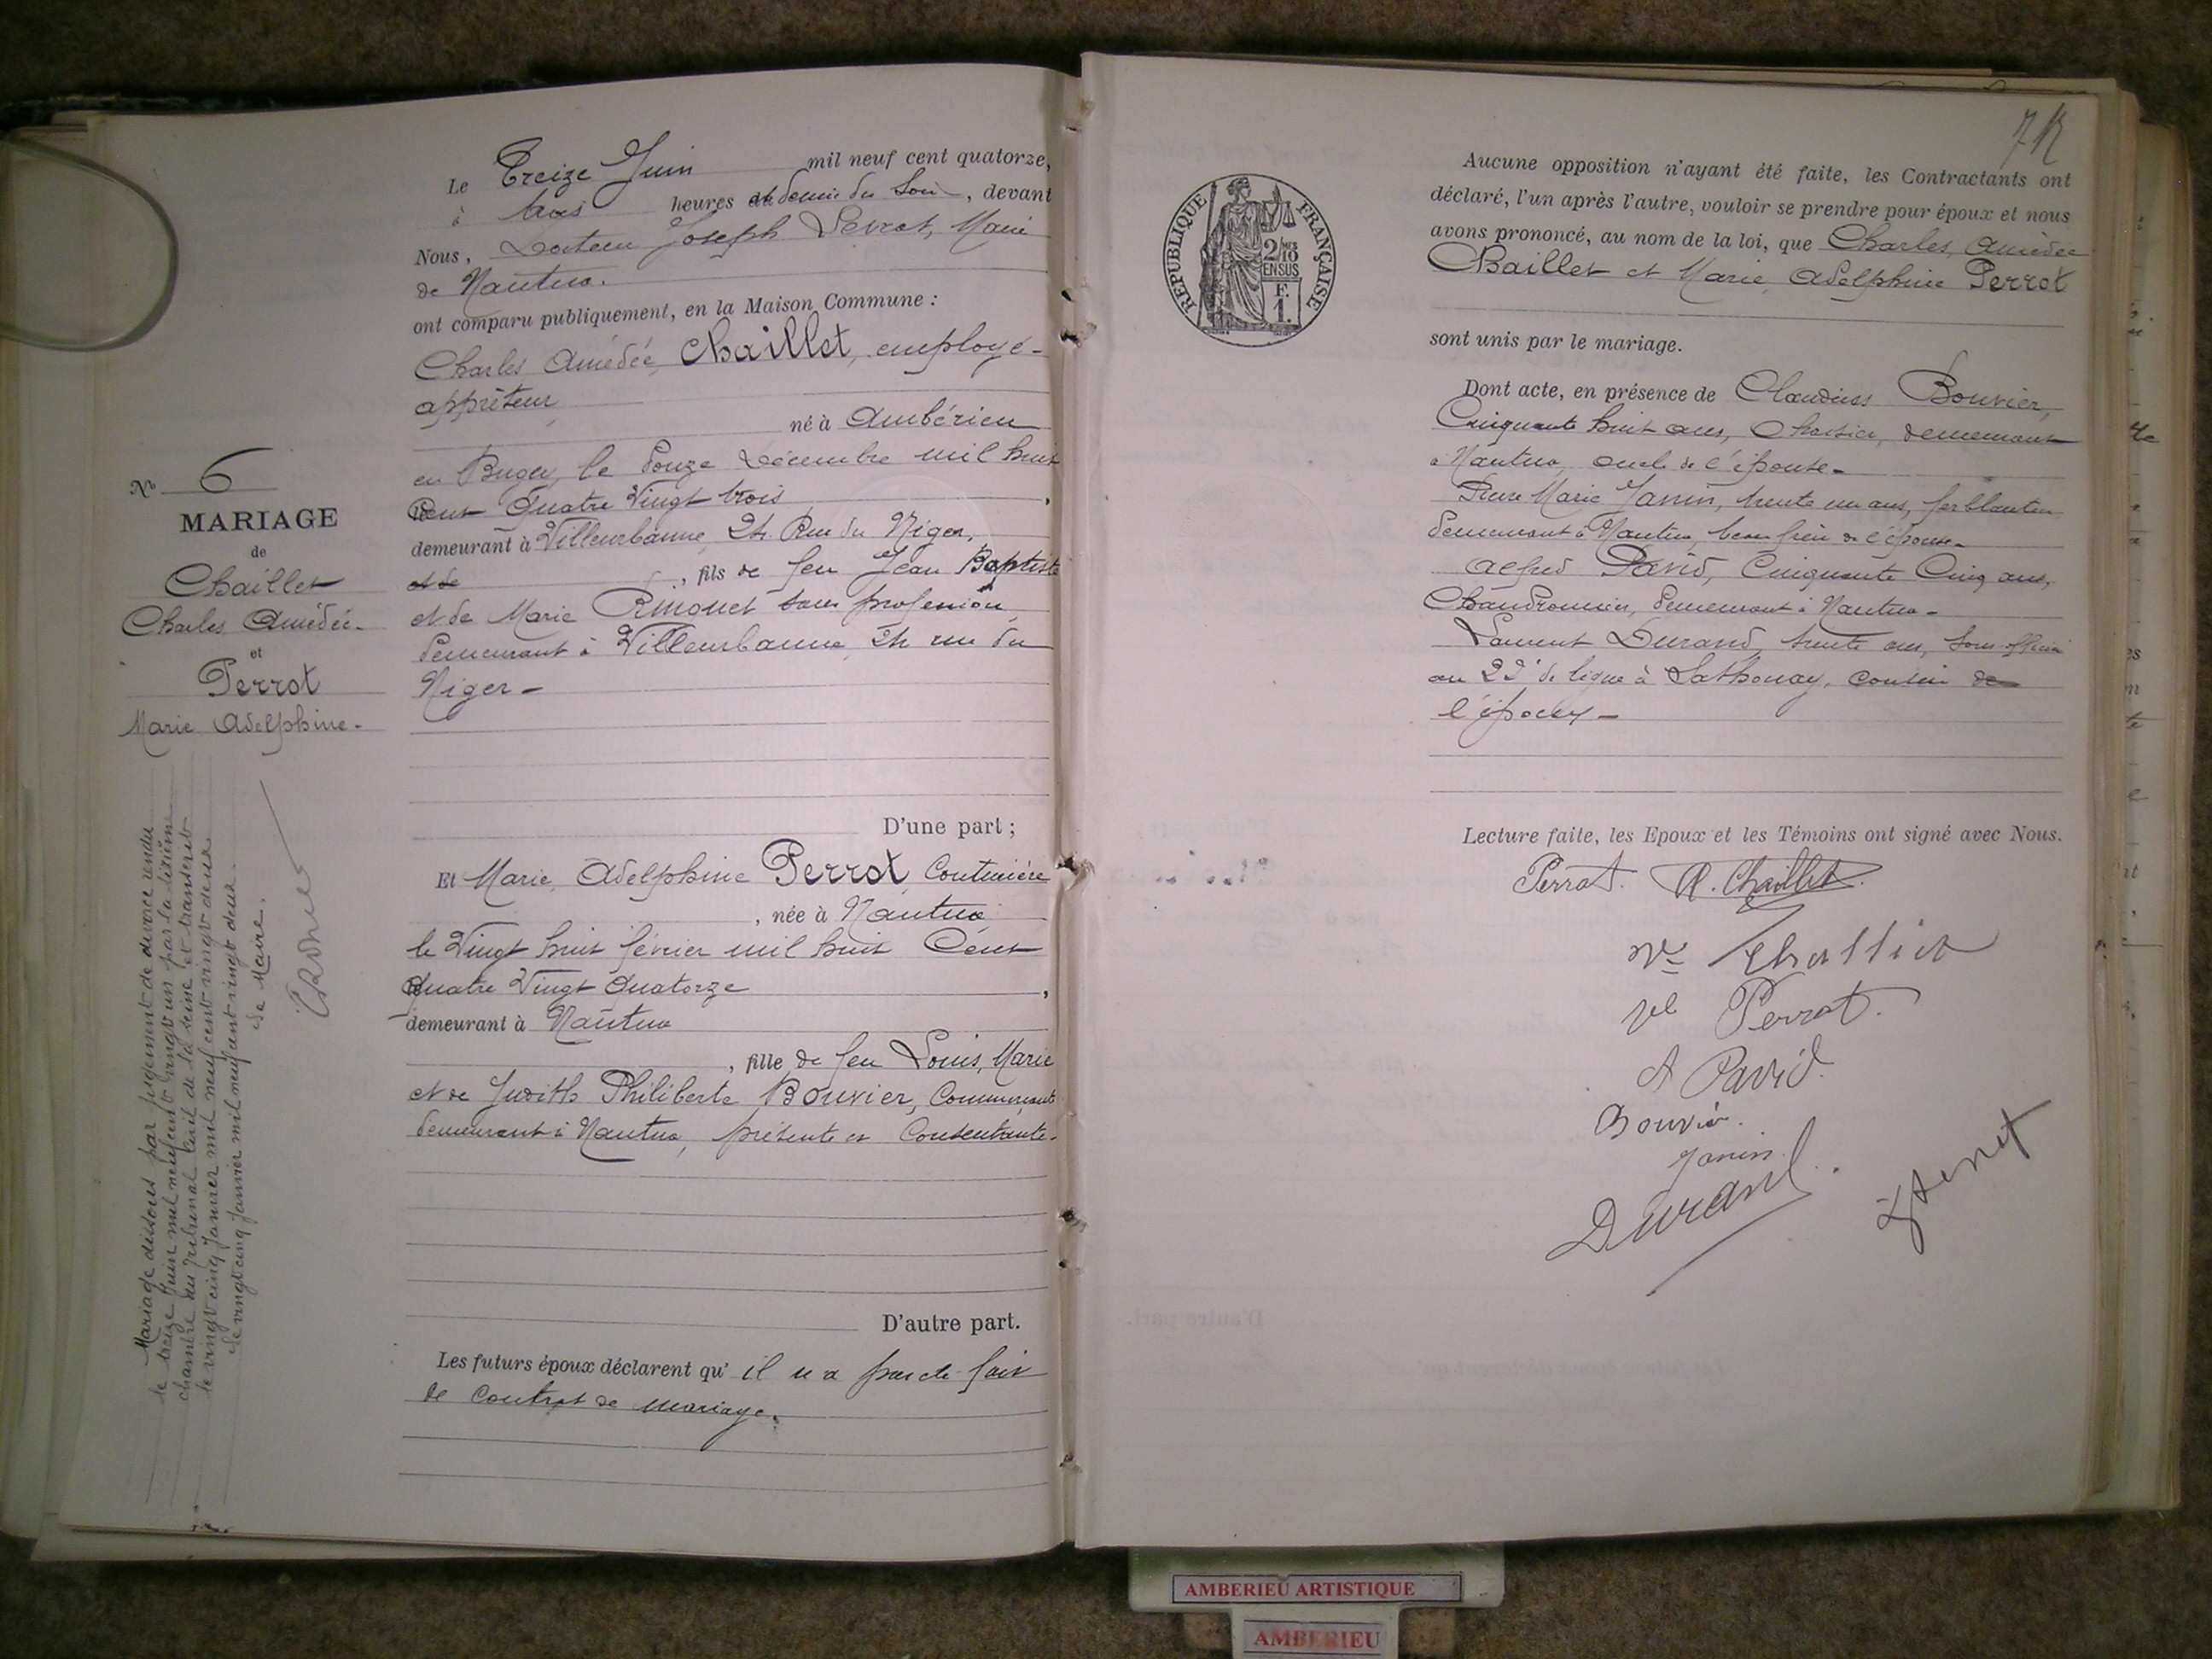 Le Treize Juin mil neuf cent quatorze,
à trois heures et demie du Soir, devant
Nous, Docteur Joseph Levrat, Maire
de Nantua.
ont comparu publiquement, en la Maison Commune :
Charles Amédée, Chaillet, employé-
apprêteur
né à Ambérieu
en Bugey, le Douze Décembre mil huit
Cent Quatre Vingt trois,
demeurant à Villeurbanne, Rue du Niger,
et de, fils de feu Jean Baptiste
et de Marie sans profession,
demeurant à Villeurbanne, rue du
Niger-
D'une part ;
Et Marie, Adelphine Perrot, Couturière
, née à Nantua
le Vingt huit février mil huit Cent
Quatre Vingt Quatorze,
demeurant à Nantua
, fille de feu Louis, Marie
et de Judith Philiberte Bouvier, Commerçante
demeurant à Nantua, présente et Consentante.
D'autre part.
Les futurs époux déclarent qu'il n'a pas été fait
de Contrat de mariage.
No 6
MARIAGE
de
Chaillet
Charles Amédée-
et
Perrot
Marie Adelphine-
Mariage dissous par jugement de divorce rendu
le treize Juin mil neuf cent vingt un par la
chambre du Tribunal Civil de la Seine et transcrit
le vingt cinq Janvier mil neuf cent vingt deux
Le vingt cinq Janvier mil neuf cent vingt deux.
Le Maire.
REPUBLIQUE FRANÇAISE
2/10
EN SUS
F.
1.
Aucune opposition n'ayant été faite, les Contractants ont
déclaré, l'un après l'autre, vouloir se prendre pour époux et nous
avons prononcé, au nom de la loi, que Charles, Amédée
Chaillet et Marie, Adelphine Perrot
sont unis par le mariage.
Dont acte, en présence de Claudius Bouvier,
Cinquante huit ans, demeurant
à Nantua, oncle de l'épouse-
Pierre Marie Janin, trente un ans, ferblantier
demeurant à Nantua, beau frère de l'épouse-
Alfred David, Cinquante Cinq ans,
Chaudronnier, demeurant à Nantua-
Laurent Durand, trente ans, Sous-officier
au 22e de ligne à Sathonay, cousin de
l'époux-
Lecture faite, les Epoux et les Témoins ont signé avec Nous.
Perrot. A. Chaillet.
Ve
Ve Perrot.
A David
Bouvier.
Janin
Durand.
AMBERIEU ARTISTIQUE
AMBERIEU